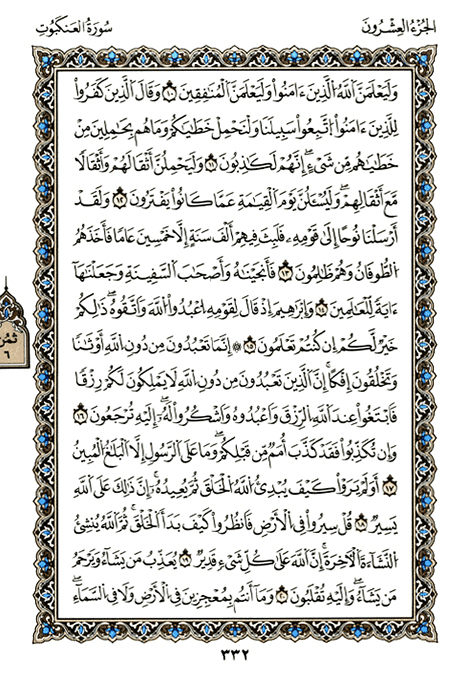 الجُزْءُ العِشْرُونَ
سُورَةُ العَنكَبُوتِ
وَلَيَعْلَمَنَّ اَللَّهُ اُلَّذِينَ ءَامَنُواْ وَلَيَعْلَمَنَّ اَلْمُنَٰفِقِينَ ١٠ وَقَالَ اَلَّذِينَ كَفَرُواْ
لِلَّذِينَ ءَامَنُواْ اُتَّبِعُواْ سَبِيلَنَا وَلْنَحْمِلْ خَطَٰيَٰكُمْ وَمَا هُم بِحَٰمِلِينَ مِنْ
خَطَٰيَٰهُم مِّن شَيْءٍ إِنَّهُمْ لَكَٰذِبُونَ ١١ وَلَيَحْمِلُنَّ أَثْقَالَهُمْ وَأَثْقَالًا
مَّعَ أَثْقَالِهِمْ وَلَيُسْـَٔلُنَّ يَوْمَ اَلْقِيَٰمَةِ عَمَّا كَانُواْ يَفْتَرُونَ ١٢ وَلَقَدْ
أَرْسَلْنَا نُوحًا إِلَىٰ قَوْمِهِۦ فَلَبِثَ فِيهِمْ أَلْفَ سَنَةٍ إِلَّا خَمْسِينَ عَامًا فَأَخَذَهُمُ
اُلطُّوفَانُ وَهُمْ ظَٰلِمُونَ ١٣ فَأَنجَيْنَٰهُ وَأَصْحَٰبَ اَلسَّفِينَةِ وَجَعَلْنَٰهَا
ءَايَةً لِّلْعَٰلَمِينَ ١٤ وَإِبْرَٰهِيمَ إِذْ قَالَ لِقَوْمِهِ اِعْبُدُواْ اُللَّهَ وَاتَّقُوهُ ذَٰلِكُمْ
خَيْرٌ لَّكُمْ إِن كُنتُمْ تَعْلَمُونَ ١٥ ۞ إِنَّمَا تَعْبُدُونَ مِن دُونِ اِللَّهِ أَوْثَٰنًا
وَتَخْلُقُونَ إِفْكًا إِنَّ اَلَّذِينَ تَعْبُدُونَ مِن دُونِ اِللَّهِ لَا يَمْلِكُونَ لَكُمْ رِزْقًا
فَابْتَغُواْ عِندَ اَللَّهِ اِلرِّزْقَ وَاعْبُدُوهُ وَاشْكُرُواْ لَهُۥ إِلَيْهِ تُرْجَعُونَ ١٦
وَإِن تُكَذِّبُواْ فَقَدْ كَذَّبَ أُمَمٌ مِّن قَبْلِكُمْ وَمَا عَلَى اَلرَّسُولِ إِلَّا اَلْبَلَٰغُ اُلْمُبِينُ
١٧ أَوَلَمْ يَرَوْاْ كَيْفَ يُبْدِئُ اُللَّهُ اُلْخَلْقَ ثُمَّ يُعِيدُهُۥ إِنَّ ذَٰلِكَ عَلَى اَللَّهِ
يَسِيرٌ ١٨ قُلْ سِيرُواْ فِي اِلْأَرْضِ فَانظُرُواْ كَيْفَ بَدَأَ اَلْخَلْقَ ثُمَّ اَللَّهُ يُنشِئُ
اُلنَّشَاءَةَ اَلْأٓخِرَةَ إِنَّ اَللَّهَ عَلَىٰ كُلِّ شَيْءٍ قَدِيرٌ ١٩ يُعَذِّبُ مَن يَشَآءُ وَيَرْحَمُ
مَن يَشَآءُ وَإِلَيْهِ تُقْلَبُونَ ٢٠ وَمَآ أَنتُم بِمُعْجِزِينَ فِي اِلْأَرْضِ وَلَا فِي اِلسَّمَآءِ
ثُمُن
٦
٣٣٢